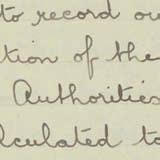 to record ou
tion of the
Authorities
lculated to